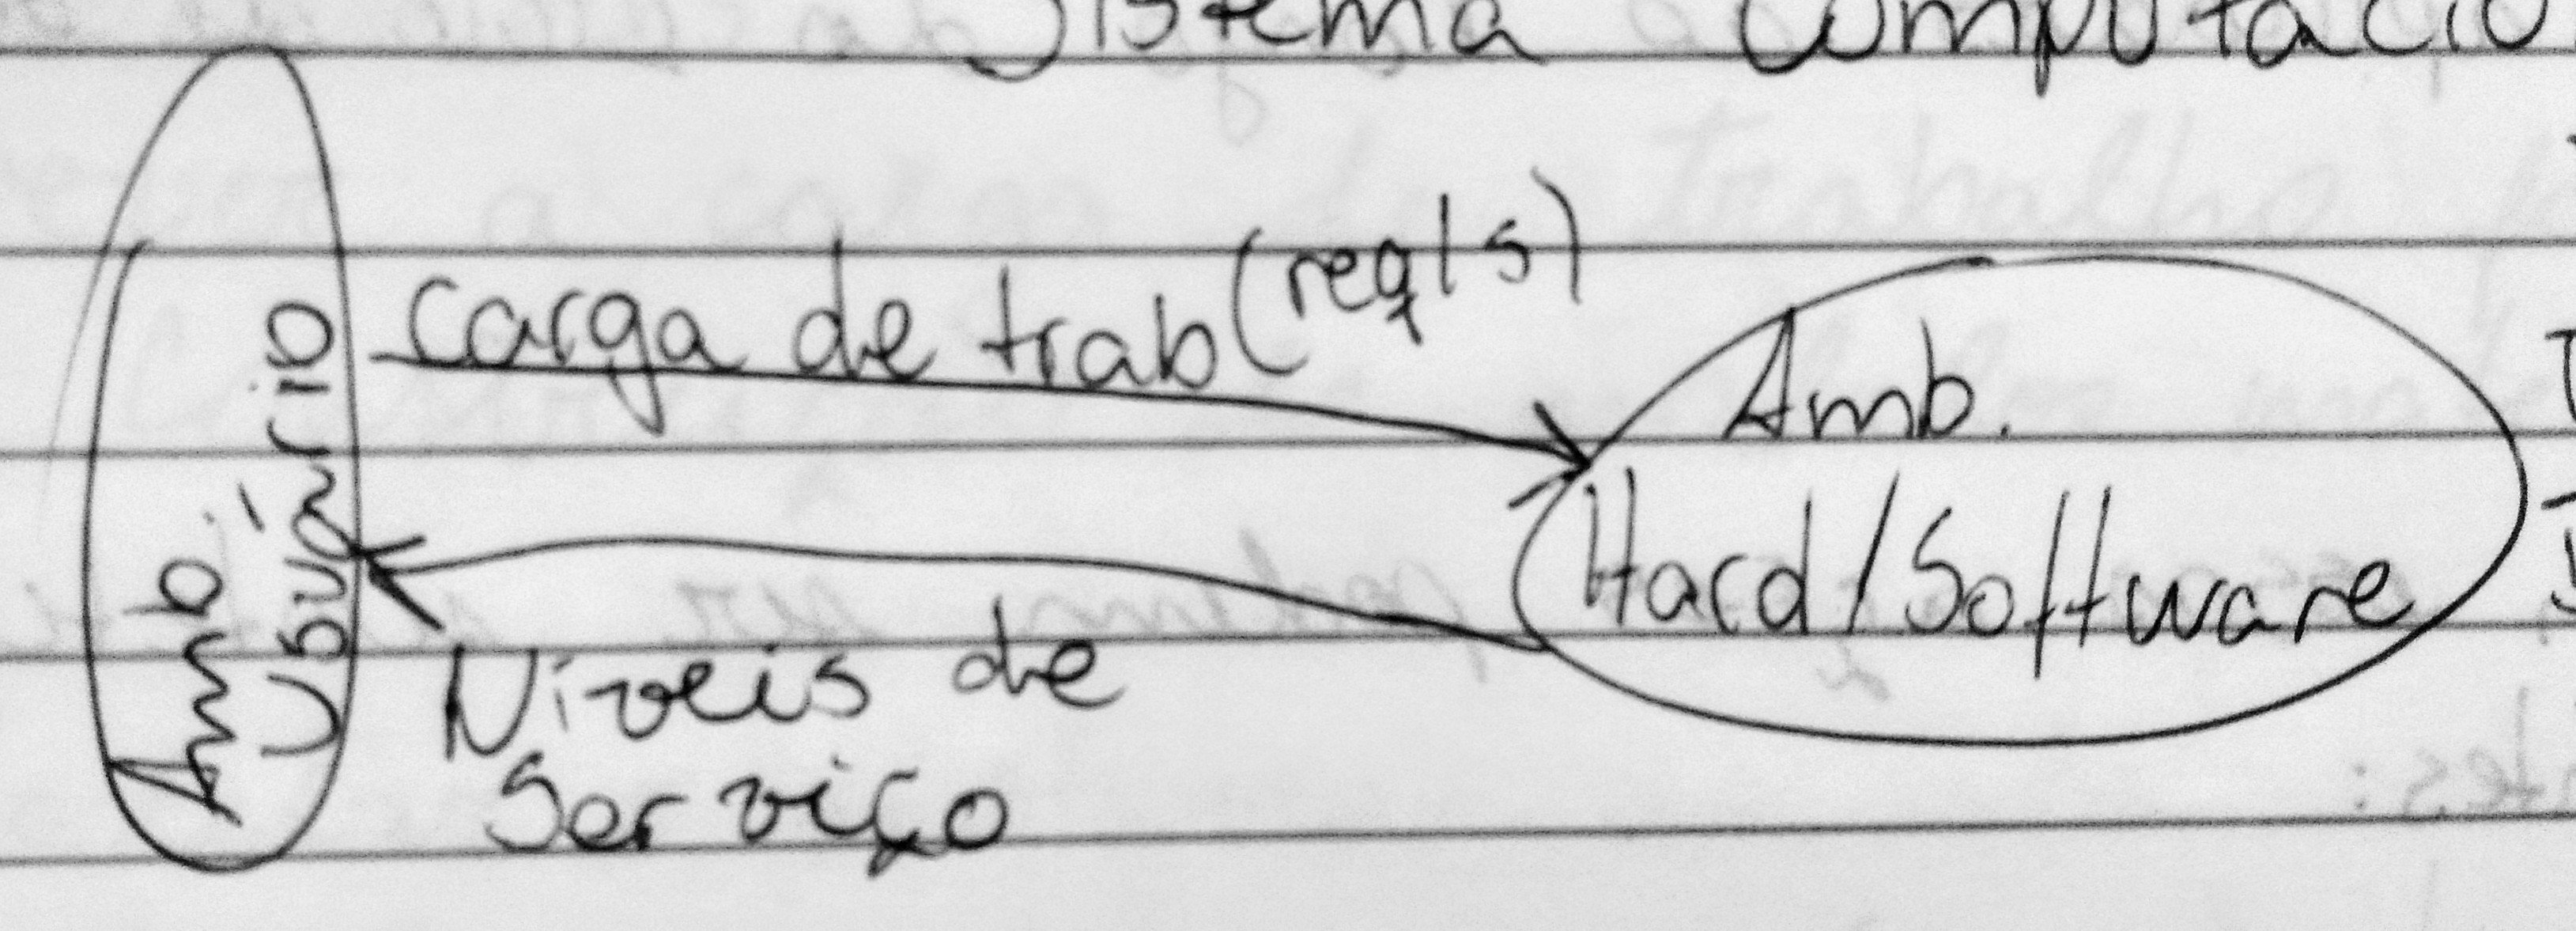 Sistema Computacio
Amb.
Usuário
carga de trab (req/s)
Amb.
Hard/Software
Níveis de
Serviço